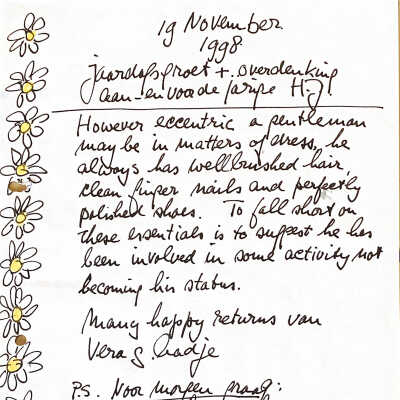 19 November
1998
jaardagsgroet + overdenking
aan en voor de jarige H.J.
However eccentric a gentleman
may be in matters of dress, he
always has wellbrushed hair,
clean finger nails and perfectly
polished shoes. To fall short on
these essentials is to suggest he has
been involved in some activity not
becoming his status.
Many happy returns van
Vera
P.S. Voor morgen graag: